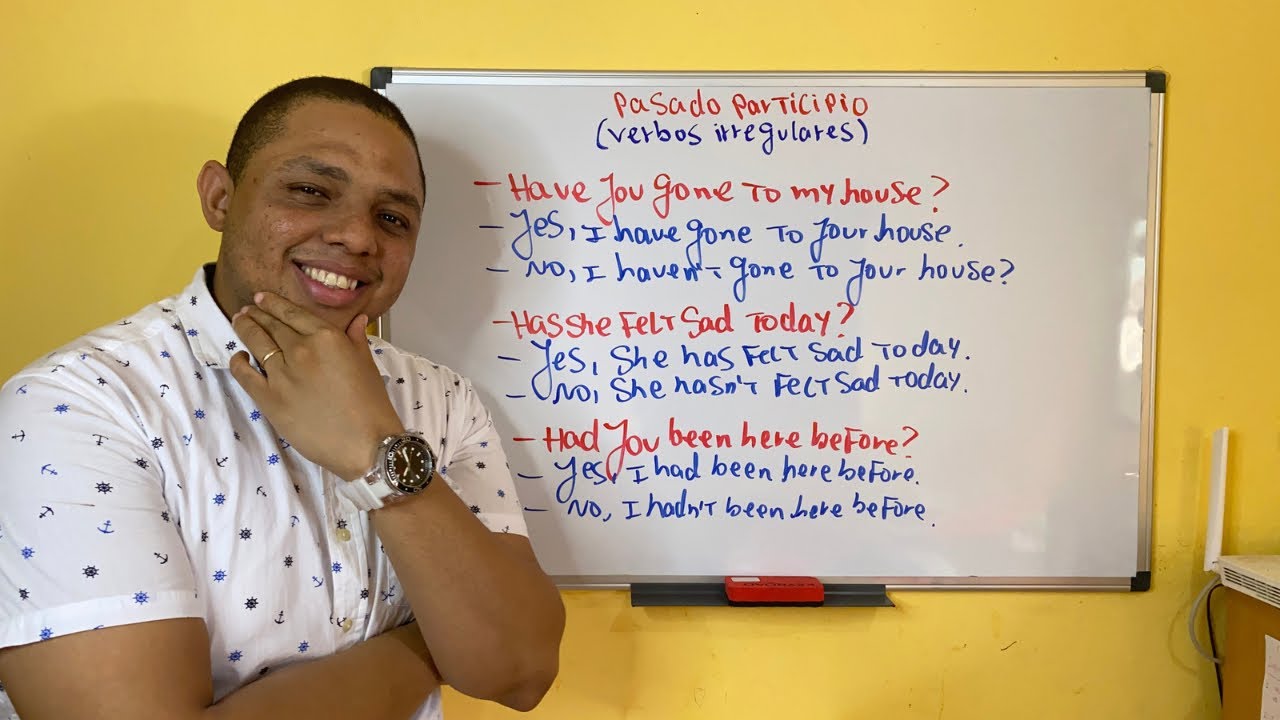 Pasado Participio
(verbos irregulares)
- Have you gone to my house?
- Yes, I have gone to your house.
- No, I haven't gone to your house?
- Has she felt sad today?
- Yes, she has felt sad today.
- No, she hasn't felt sad today.
- Had you been here before?
- Yes, I had been here before.
- No, I hadn't been here before.